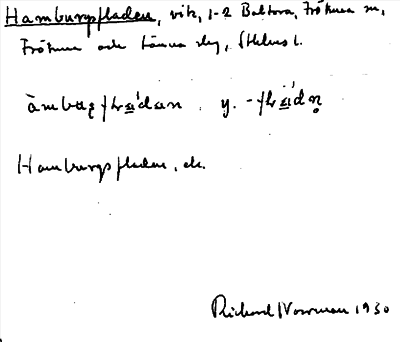 Hamburgsfladen, vik, 1-2 Baltora, Frötuna m,
Frötuna och Länna skg, Sthlms l.
àmbuʂflɑ́dan, y. -flɑ́dn̥
Hamburgsfladen, ek.
Richard Norrman 1930